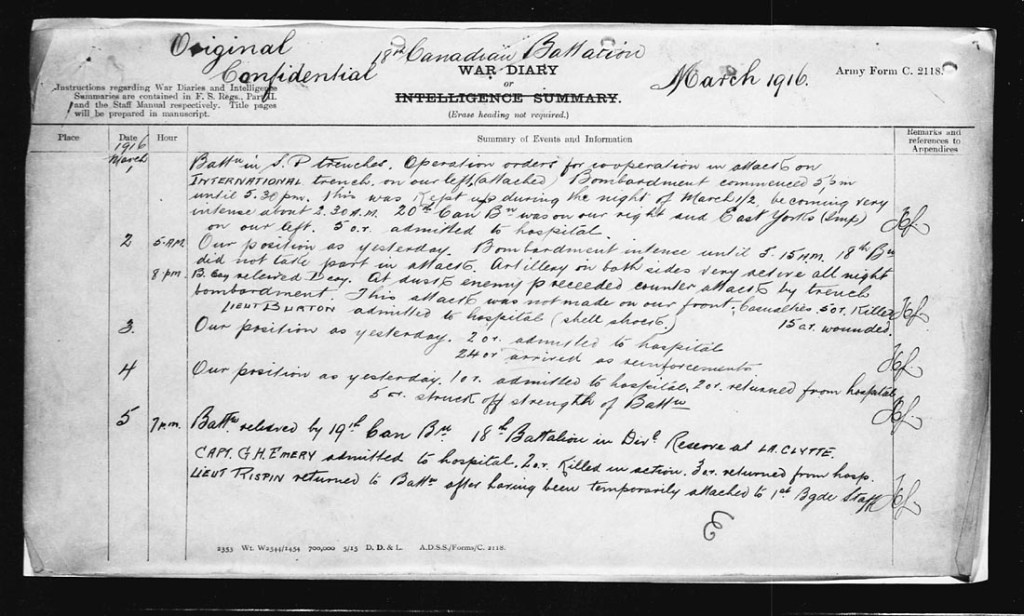 Original
18th Canadian Battalion
Confidential
WAR DIARY
or
INTELLIGENCE SUMMARY.
(Erase heading not required.)
March 1916.
Army Form C. 2118.
Instructions regarding War Diaries and Intelligence
Summaries are contained in F. S. Regs., Part II.
and the Staff Manual respectively. Title pages
will be prepared in manuscript.
Place
Date
Hour
Summary of Events and Information
Remarks and
references to
Appendices
1916
March
1
Battn in S.P trenches. Operation orders for cooperation in attack on
INTERNATIONAL trench on our left, (attached) Bombardment commenced 5 pm
until 5.30 pm. This was kept up during the night of March 1/2, becoming very
intense about 2.30 A.M. 20th Can Bn was on our right and East Yorks (Imp)
on our left. 5 o.r. admitted to hospital.
2 5 AM. Our position as yesterday. Bombardment intense until 5.15 A.M. 18th Bn
did not take part in attack. Artillery on both sides very active all night
8 pm. B. Coy relieved D Coy. At dusk enemy preceeded counter attack by trench
bombardment. This attack was not made on our front. Casualties 5 o.r. Killed
LIEUT BURTON admitted to hospital (shell shock.) 15 o.r. wounded.
3. Our position as yesterday. 2 o.r. admitted to hospital
24 o.r arrived as reinforcements.
4 Our position as yesterday. 1 o.r. admitted to hospital, 2 o.r. returned from hospital
5 o.r. struck off strength of Battn
5 7 p.m. Battn relieved by 19th Can Bn. 18th Battalion in Divl Reserve at LA CLYTTE.
CAPT. G.H. EMERY admitted to hospital. 2 o.r. Killed in action. 3 o.r. returned from hosp.
LIEUT RISPIN returned to Battn after having been temporarily attached to 1st Bgde Staff
2353 Wt. W2544/1454 700,000 5/15 D. D. & L. A.D.S.S./Forms/C. 2118.